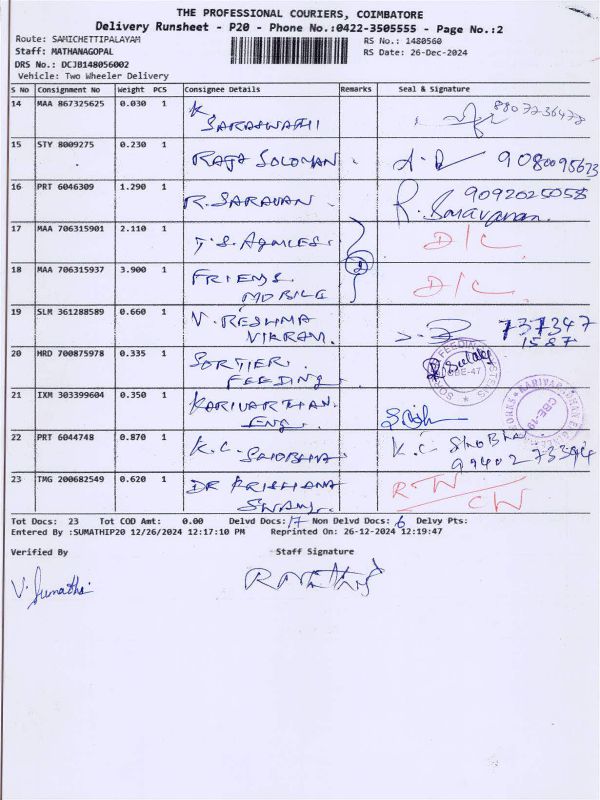 THE PROFESSIONAL COURIERS, COIMBATORE
Delivery Runsheet - P20 - Phone No.:0422-3505555 - Page No.:2
Route: SAMICHETTIPALAYAM RS No.: 1480560
Staff: MATHANAGOPAL RS Date: 26-Dec-2024
DRS No.: DCJB148056002
Vehicle: Two Wheeler Delivery
S No Consignment No Weight PCS Consignee Details Remarks Seal & Signature
14 MAA 867325625 0.030 1 K 8807236478
SARASWATHI
15 STY 8009275 0.230 1 RAJA SOLOMAN 9080095673
16 PRT 6046309 1.290 1 R. SARAVAN. 9092025058
R. Saravanan.
17 MAA 706315901 2.110 1 T.S. D/C
18 MAA 706315937 3.900 1 FRIENS D/C
MOBILE
19 SLM 361288589 0.660 1 V. RESHMA 737347
VIKRAM. 1587
20 HRD 700875978 0.335 1 SORTIER CBE-47
FEEDING
21 IXM 303399604 0.350 1 KARIVARTHAN CBE-19
ENG
22 PRT 6044748 0.870 1 K.C. SHOBHA K.C SHOBHA
9940273394
23 TMG 200682549 0.620 1 DR KRISHANA
SWAMY.
Tot Docs: 23 Tot COD Amt: 0.00 Delvd Docs: 17 Non Delvd Docs: 6 Delvy Pts:
Entered By :SUMATHIP20 12/26/2024 12:17:10 PM Reprinted On: 26-12-2024 12:19:47
Verified By Staff Signature
V. Sumathi